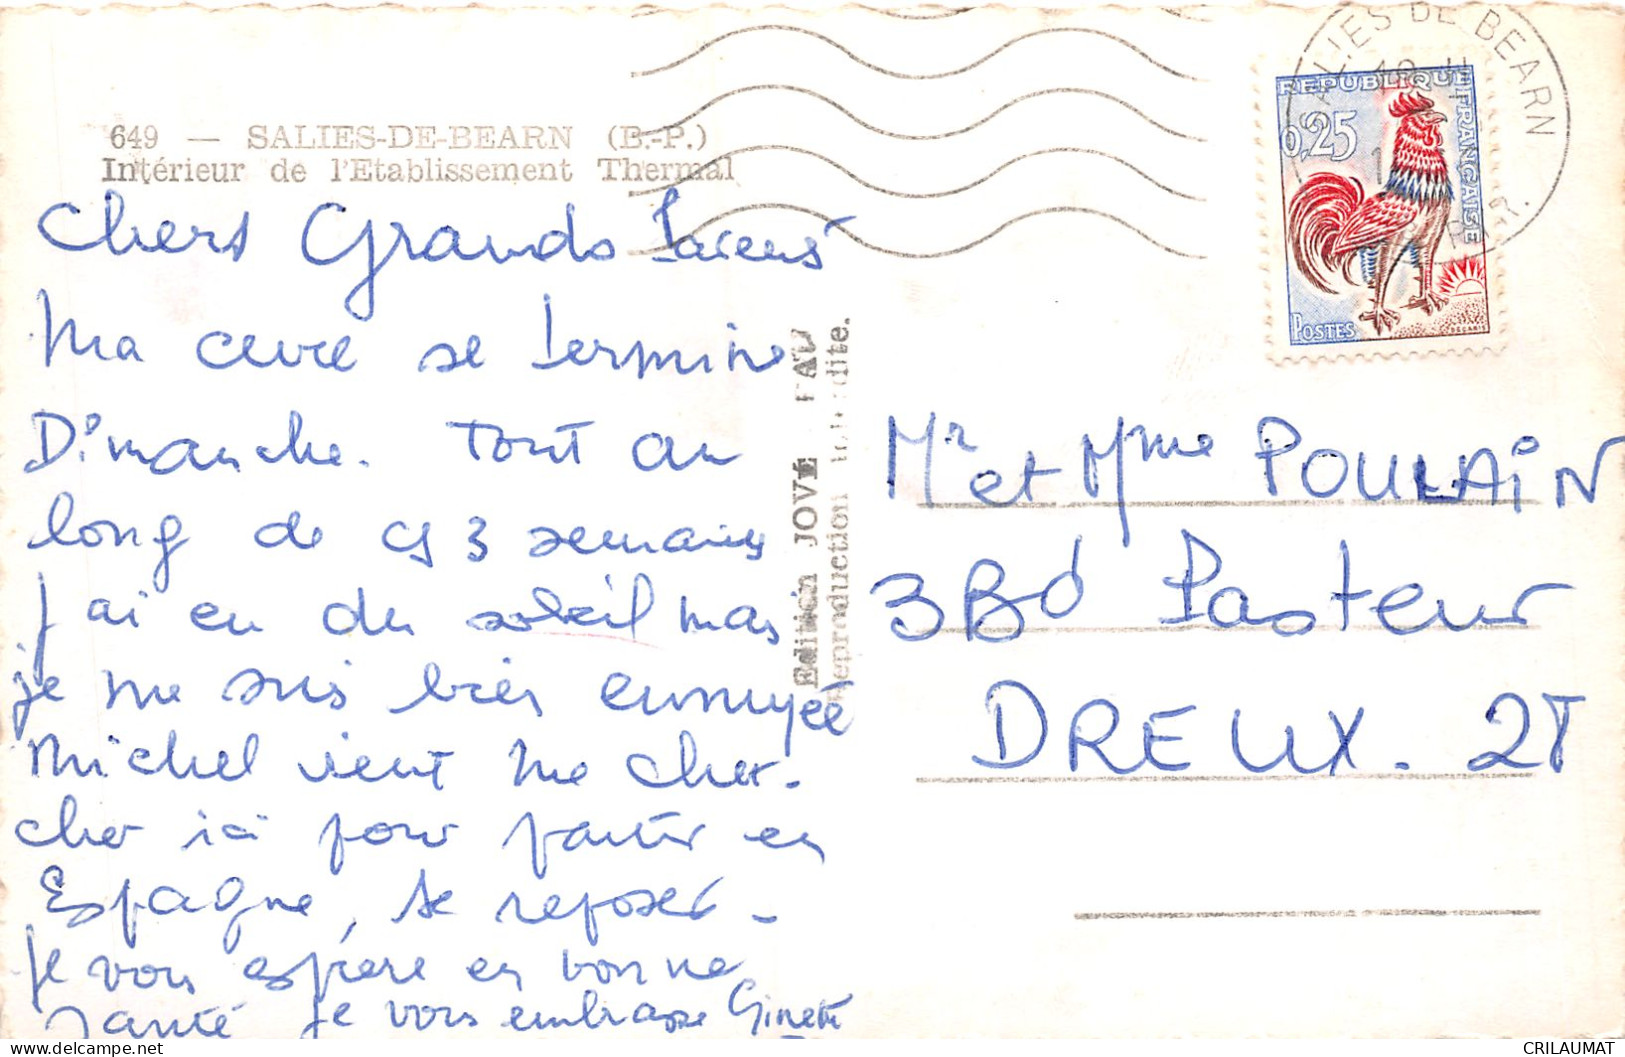 649 — SALIES-DE-BEARN (B.-P.)
Intérieur de l'Etablissement Thermal
Chers Grands Parents
Ma cure se termine
Dimanche. Tout au
long de ces 3 semaines
j'ai eu du soleil mais
je me suis bien ennuyée
Michel vient me cher-
cher ici pour partir en
Espagne, se reposer -
Je vous espère en bonne
santé je vous embrasse Ginette
Edition JOVÉ PAU
Reproduction interdite.
SALIES DE BEARN
REPUBLIQUE FRANÇAISE
0,25
POSTES
DECARIS
Mr et Mme POULAIN
3 Bd Pasteur
DREUX. 28
CRILAUMAT